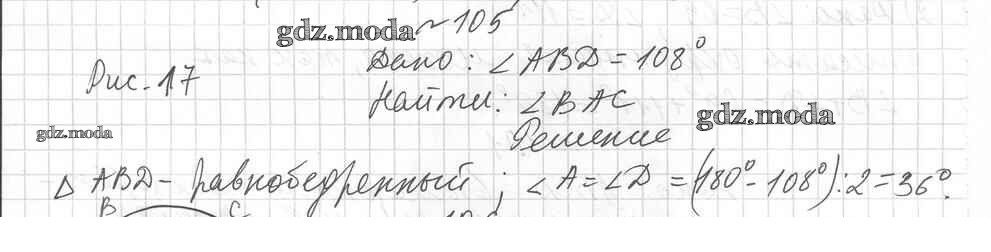 gdz.moda ~ 105
Рис. 17
Дано: ∠ABD = 108°
Найти: ∠BAC
gdz.moda
gdz.moda
Решение
Δ ABD - равнобедренный; ∠A = ∠D = (180° - 108°) : 2 = 36°.
B C